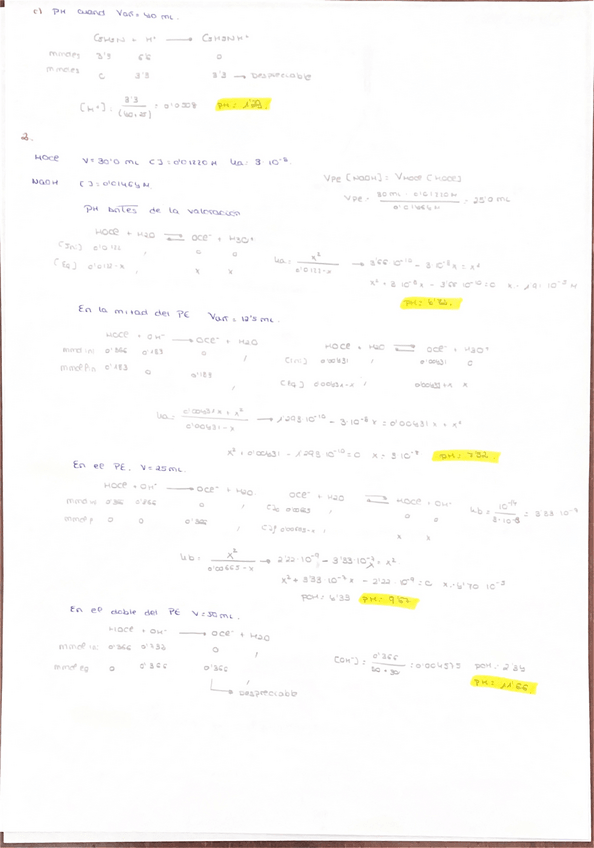 c) pH cuando Vañ = 40 mL.
C5H5N + H+ → C5H5NH+
mmoles 3'3 6'6 0
mmoles 0 3'3 3'3 → Despreciable
[H+] = 3'3 / (40+25) = 0'0508 pH = 1'29
2.
HOCl V = 30'0 mL [ ] = 0'01220 M Ka = 3·10⁻⁸
NaOH [ ] = 0'01464 M.
VPE [NaOH] = VHOCl [HOCl]
VPE = 30 mL · 0'01220 M / 0'01464 M = 25'0 mL
pH antes de la valoración
HOCl + H2O ⇌ OCl⁻ + H3O+
[In] 0'0122 / 0 0
[Eq] 0'0122-x / x x
Ka = x² / 0'0122-x → 3'66·10⁻¹⁰ - 3·10⁻⁸x = x²
x² + 3·10⁻⁸x - 3'66·10⁻¹⁰ = 0 x = 1'91·10⁻⁵ M
En la mitad del PE Vañ = 12'5 mL.
HOCl + OH⁻ → OCl⁻ + H2O
mmol in 0'366 0'183 0 /
mmol fin 0'183 0 0'183 /
HOCl + H2O ⇌ OCl⁻ + H3O+
[in] 0'00431 / 0'00431 0
[Eq] 0'00431-x / 0'00431+x x
Ka = 0'00431x + x² / 0'00431-x → 1'293·10⁻¹⁰ - 3·10⁻⁸x = 0'00431x + x²
x² + 0'00431 - 1'293·10⁻¹⁰ = 0 x = 3·10⁻⁸ pH = 7'52
En el PE. V = 25 mL.
HOCl + OH⁻ → OCl⁻ + H2O
mmol in 0'366 0'366 0 /
mmol f 0 0 0'366 /
OCl⁻ + H2O ⇌ HOCl + OH⁻
0 0
x x
Kb = 10⁻¹⁴ / 3·10⁻⁸ = 3'33·10⁻⁷
Kb = x² / 0'00665-x → 2'22·10⁻⁹ - 3'33·10⁻⁷x = x²
x² + 3'33·10⁻⁷x - 2'22·10⁻⁹ = 0 x = 4'70·10⁻⁵
pOH = 4'33 pH = 9'67
En el doble del PE V = 50 mL.
HOCl + OH⁻ → OCl⁻ + H2O
mmol in 0'366 0'732 0 /
mmol eq 0 0'366 0'366 /
→ Despreciable
[OH⁻] = 0'366 / 30+50 = 0'004575 pOH = 2'34
pH = 11'66